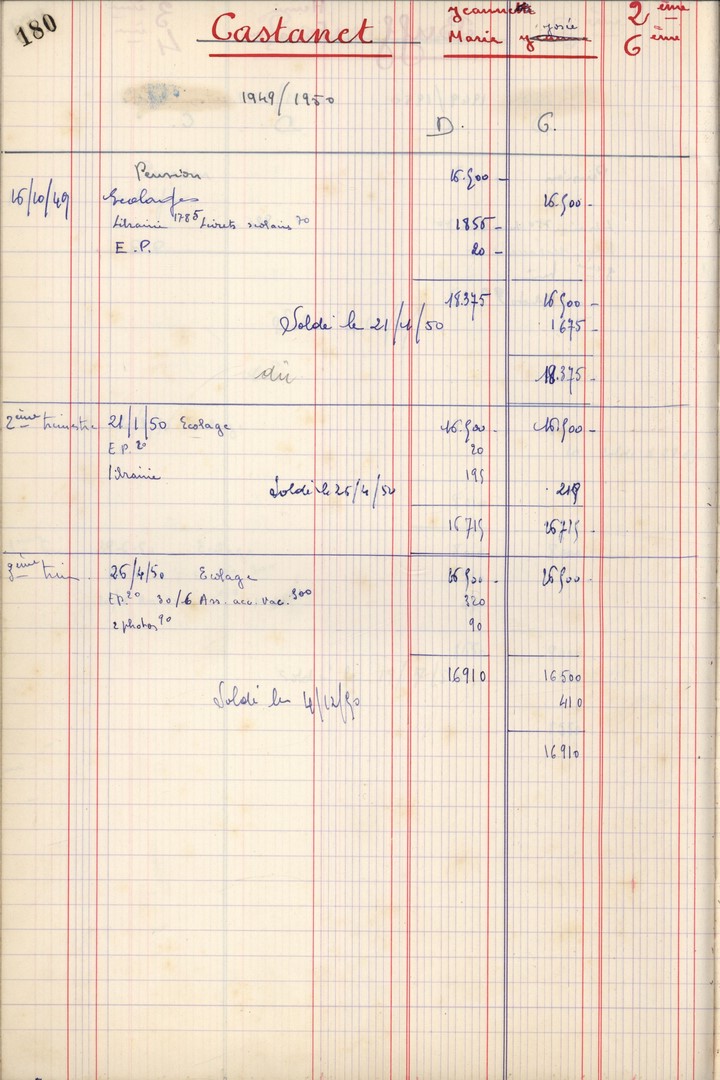 180 Castanet Jeannette 2ème
Marie josée 6ème
1949/1950
D. G.
Pension 16.500 -
16/10/49 Ecolages 16.500 -
Librairie 1785 Livrets scolaires 70 1855 -
E.P. 20 -
18.375 16500 -
Soldé le 21/1/50 1675 -
dû 18.375 -
2ème trimestre 21/1/50 Ecolage 16.500 - 16.500 -
E P. 20 20
librairie 195
Soldé le 26/4/50 219
16715 16715 -
3ème trim. 26/4/50 Ecolage 16500 - 16500 -
EP. 20 30/6 Ass. acc. vac. 300 320
2 photos 90 90
16910 16500
Soldé le 4/12/50 410
16910